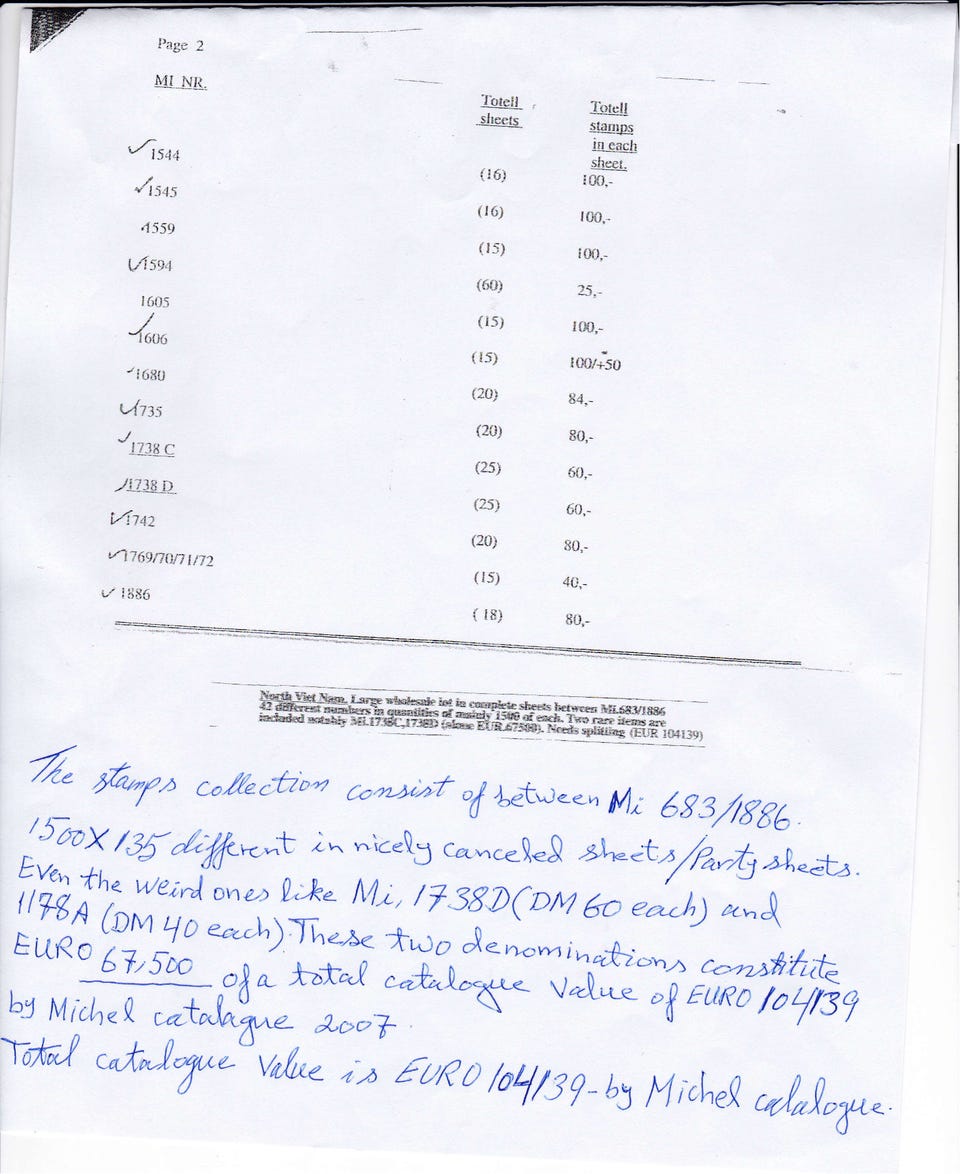 Page 2
MI NR.
Totell sheets
Totell stamps in each sheet.
1544 (16) 100,-
1545 (16) 100,-
1559 (15) 100,-
1594 (60) 25,-
1605 (15) 100,-
1606 (15) 100/+50
1680 (20) 84,-
1735 (20) 80,-
1738 C (25) 60,-
1738 D (25) 60,-
1742 (20) 80,-
1769/70/71/72 (15) 40,-
1886 ( 18) 80,-
North Viet Nam. Large wholesale lot in complete sheets between Mi.683/1886
42 different numbers in quantities of mainly 1500 of each. Two rare items are
included notably Mi.1738C,1738D (alone EUR.67500). Needs splitting (EUR 104139)
The stamps collection consist of between Mi 683/1886.
1500X135 different in nicely canceled sheets/Party sheets.
Even the weird ones like Mi, 1738D (DM 60 each) and
1178A (DM 40 each). These two denominations constitute
EURO 67,500 of a total catalogue value of EURO 104139
by Michel catalague 2007.
Total catalogue value is EURO 104139-by Michel catalogue.